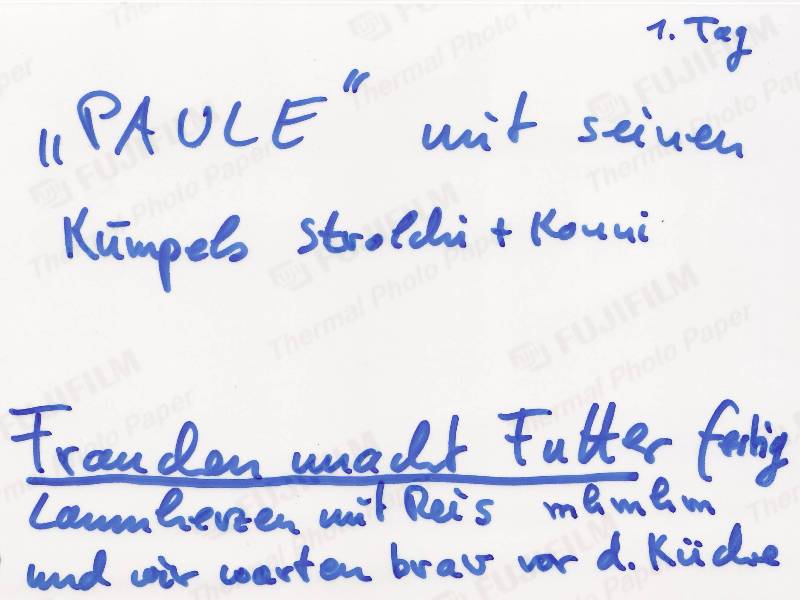 1. Tag
„PAULE“ mit seinen
Kumpels Strolchi + Konni
Frauchen macht Futter fertig
Lammherzen mit Reis mhmhm
und wir warten brav vor d. Küche
FUJIFILM
Thermal Photo Paper